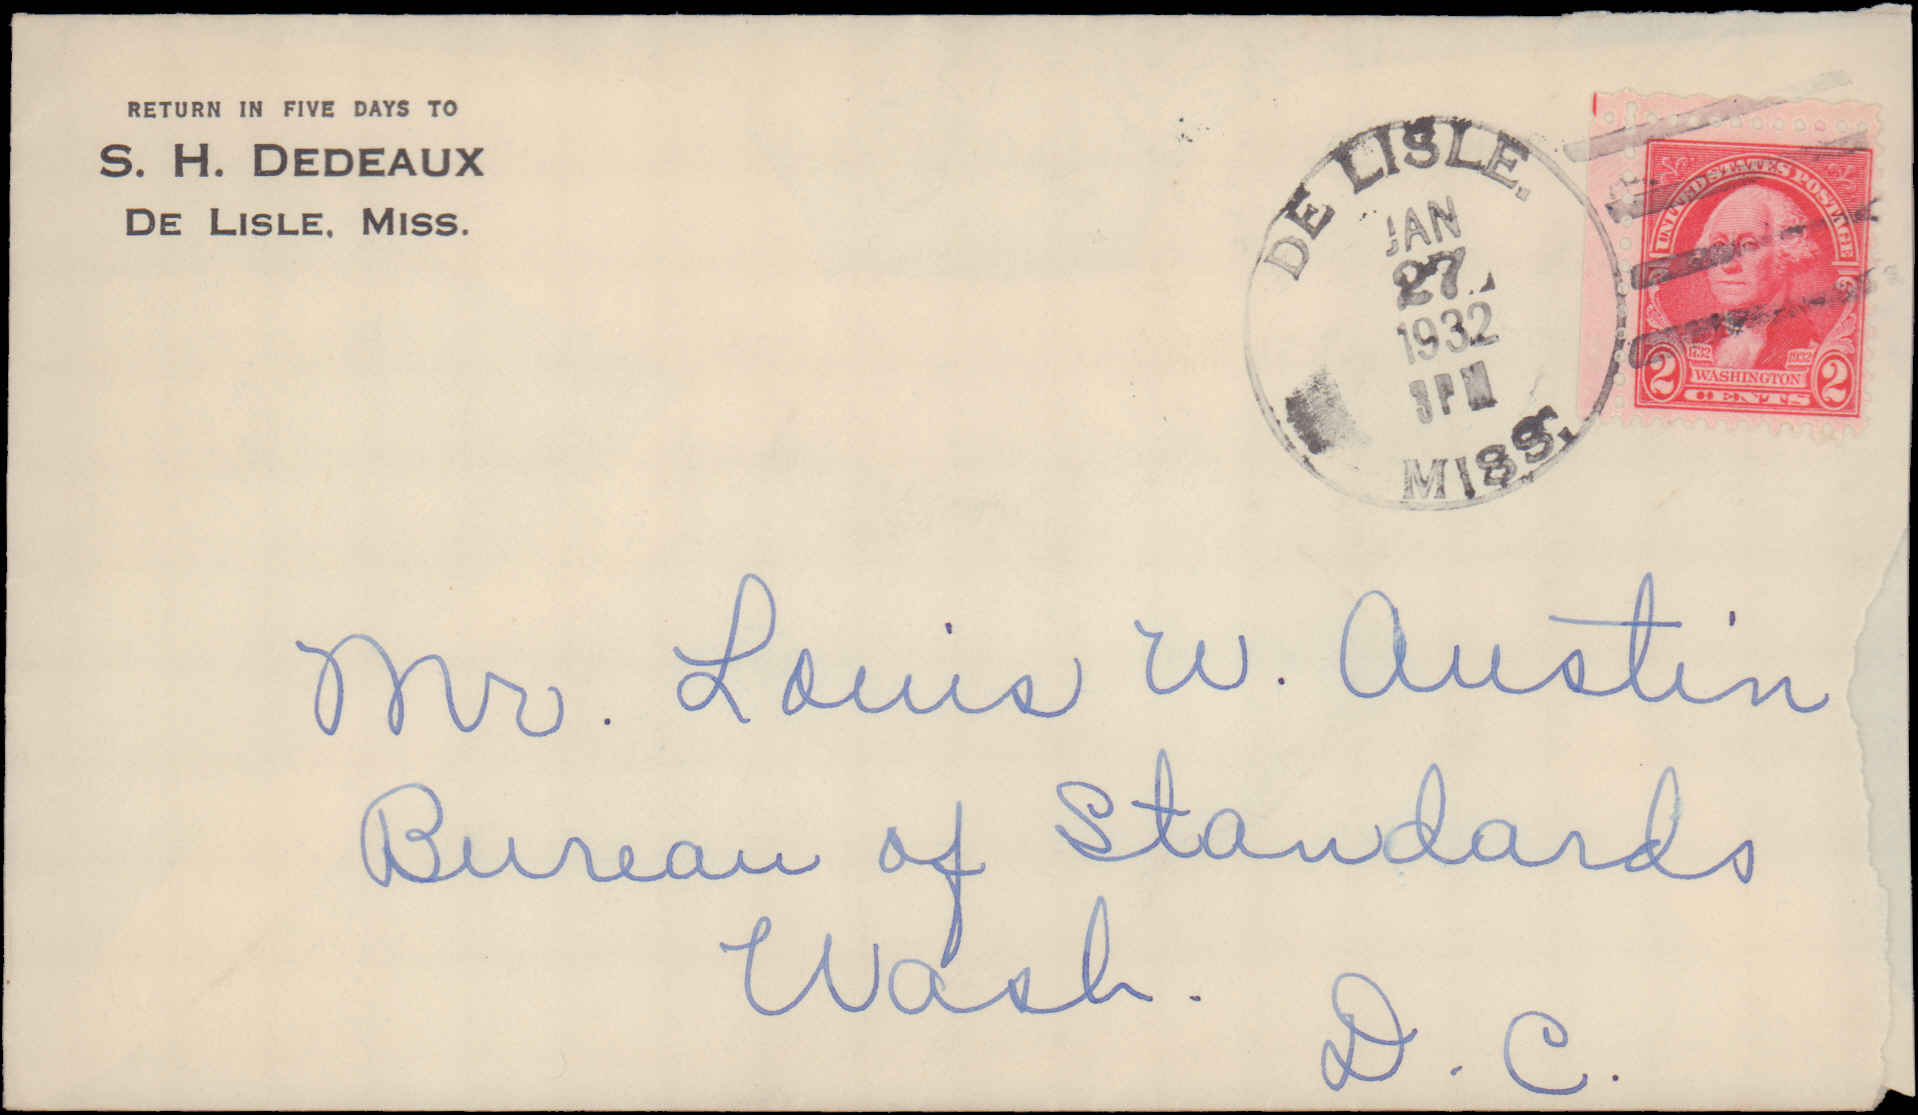 RETURN IN FIVE DAYS TO
S. H. DEDEAUX
DE LISLE, MISS.
DE LISLE.
JAN
27
1932
PM
MISS.
UNITED STATES POSTAGE
1732 1932
2 WASHINGTON 2
CENTS
Mr. Louis W. Austin
Bureau of Standards
Wash.
D. C.